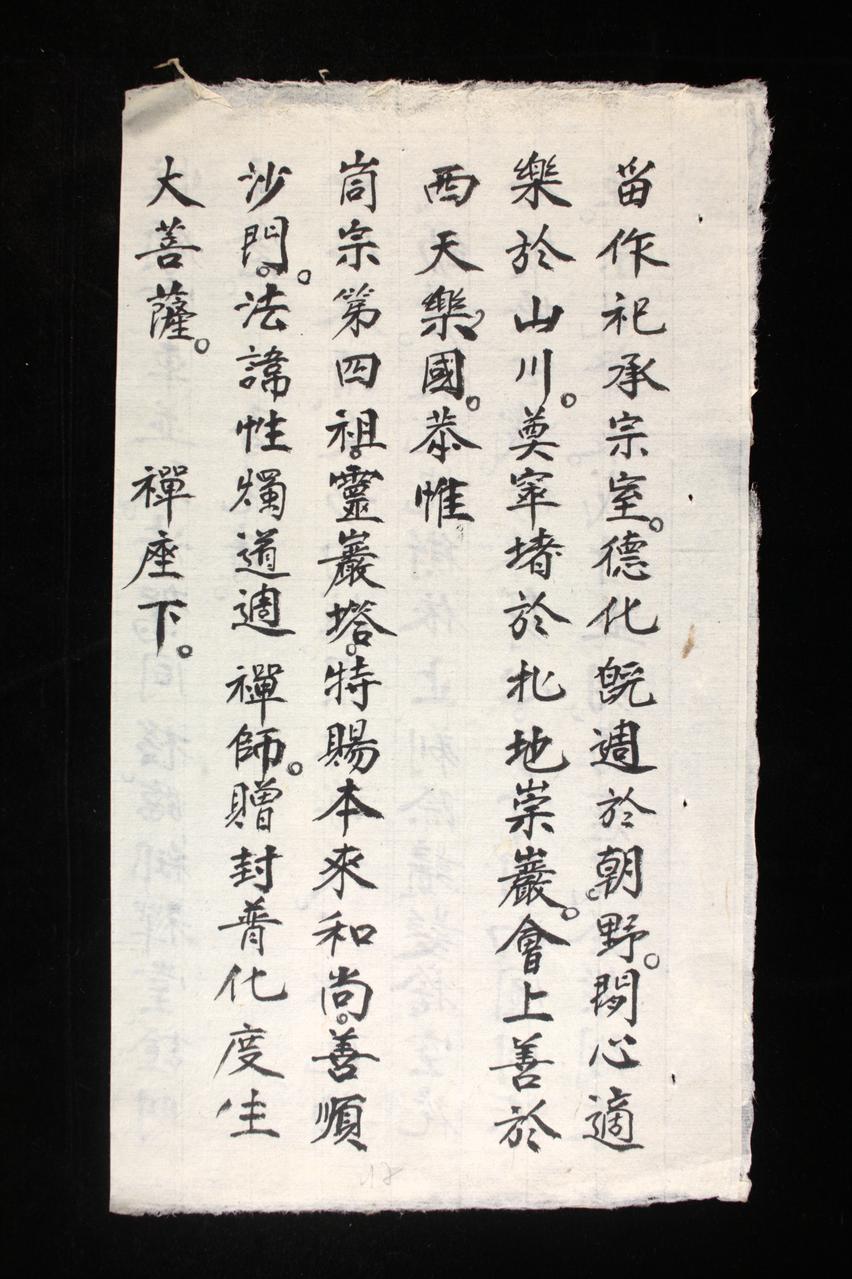 畱作祀承宗室。德化旣週於朝野。閒心適
樂於山川。奠窣堵於北地崇巖。會上善於
西天樂國。恭惟
峝宗第四祖。靈巖塔。特賜本來和尚。善順
沙門。法諱性燭道週 禪師。贈封普化度生
大菩薩。 禪座下。
18